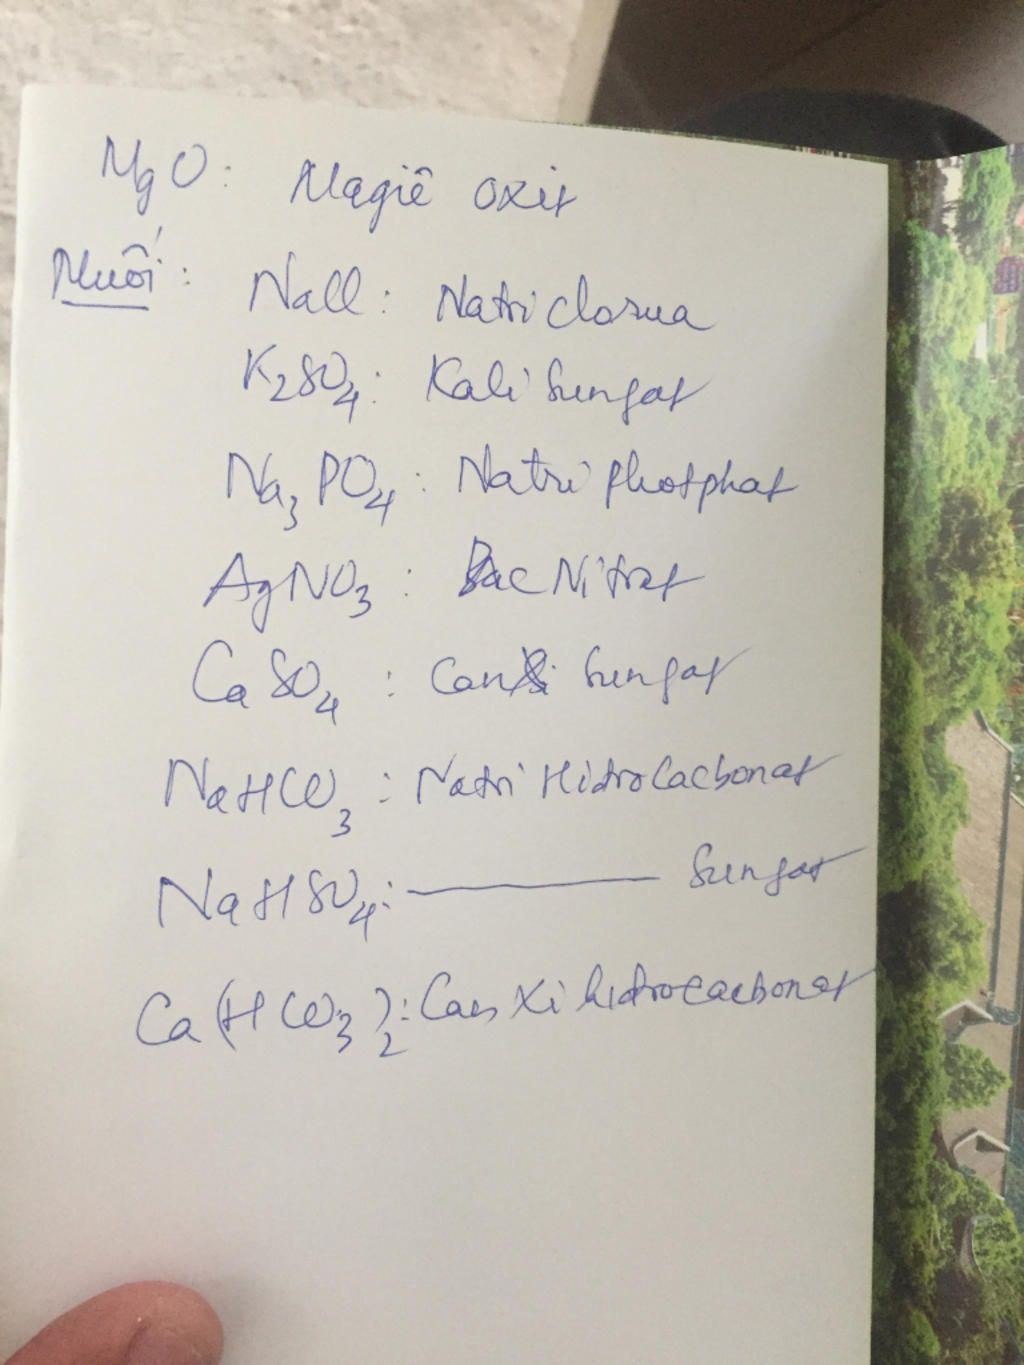 MgO: Magiê oxit
Muối: NaCl: Natri clorua
K₂SO₄: Kali sungat
Na₃PO₄: Natri photphat
AgNO₃: Bac Nitrat
CaSO₄: canxi sungat
NaHCO₃: Natri Hidrocacbonat
NaHSO₄: ——— sungat
Ca(HCO₃)₂: Can xi hidrocacbonat